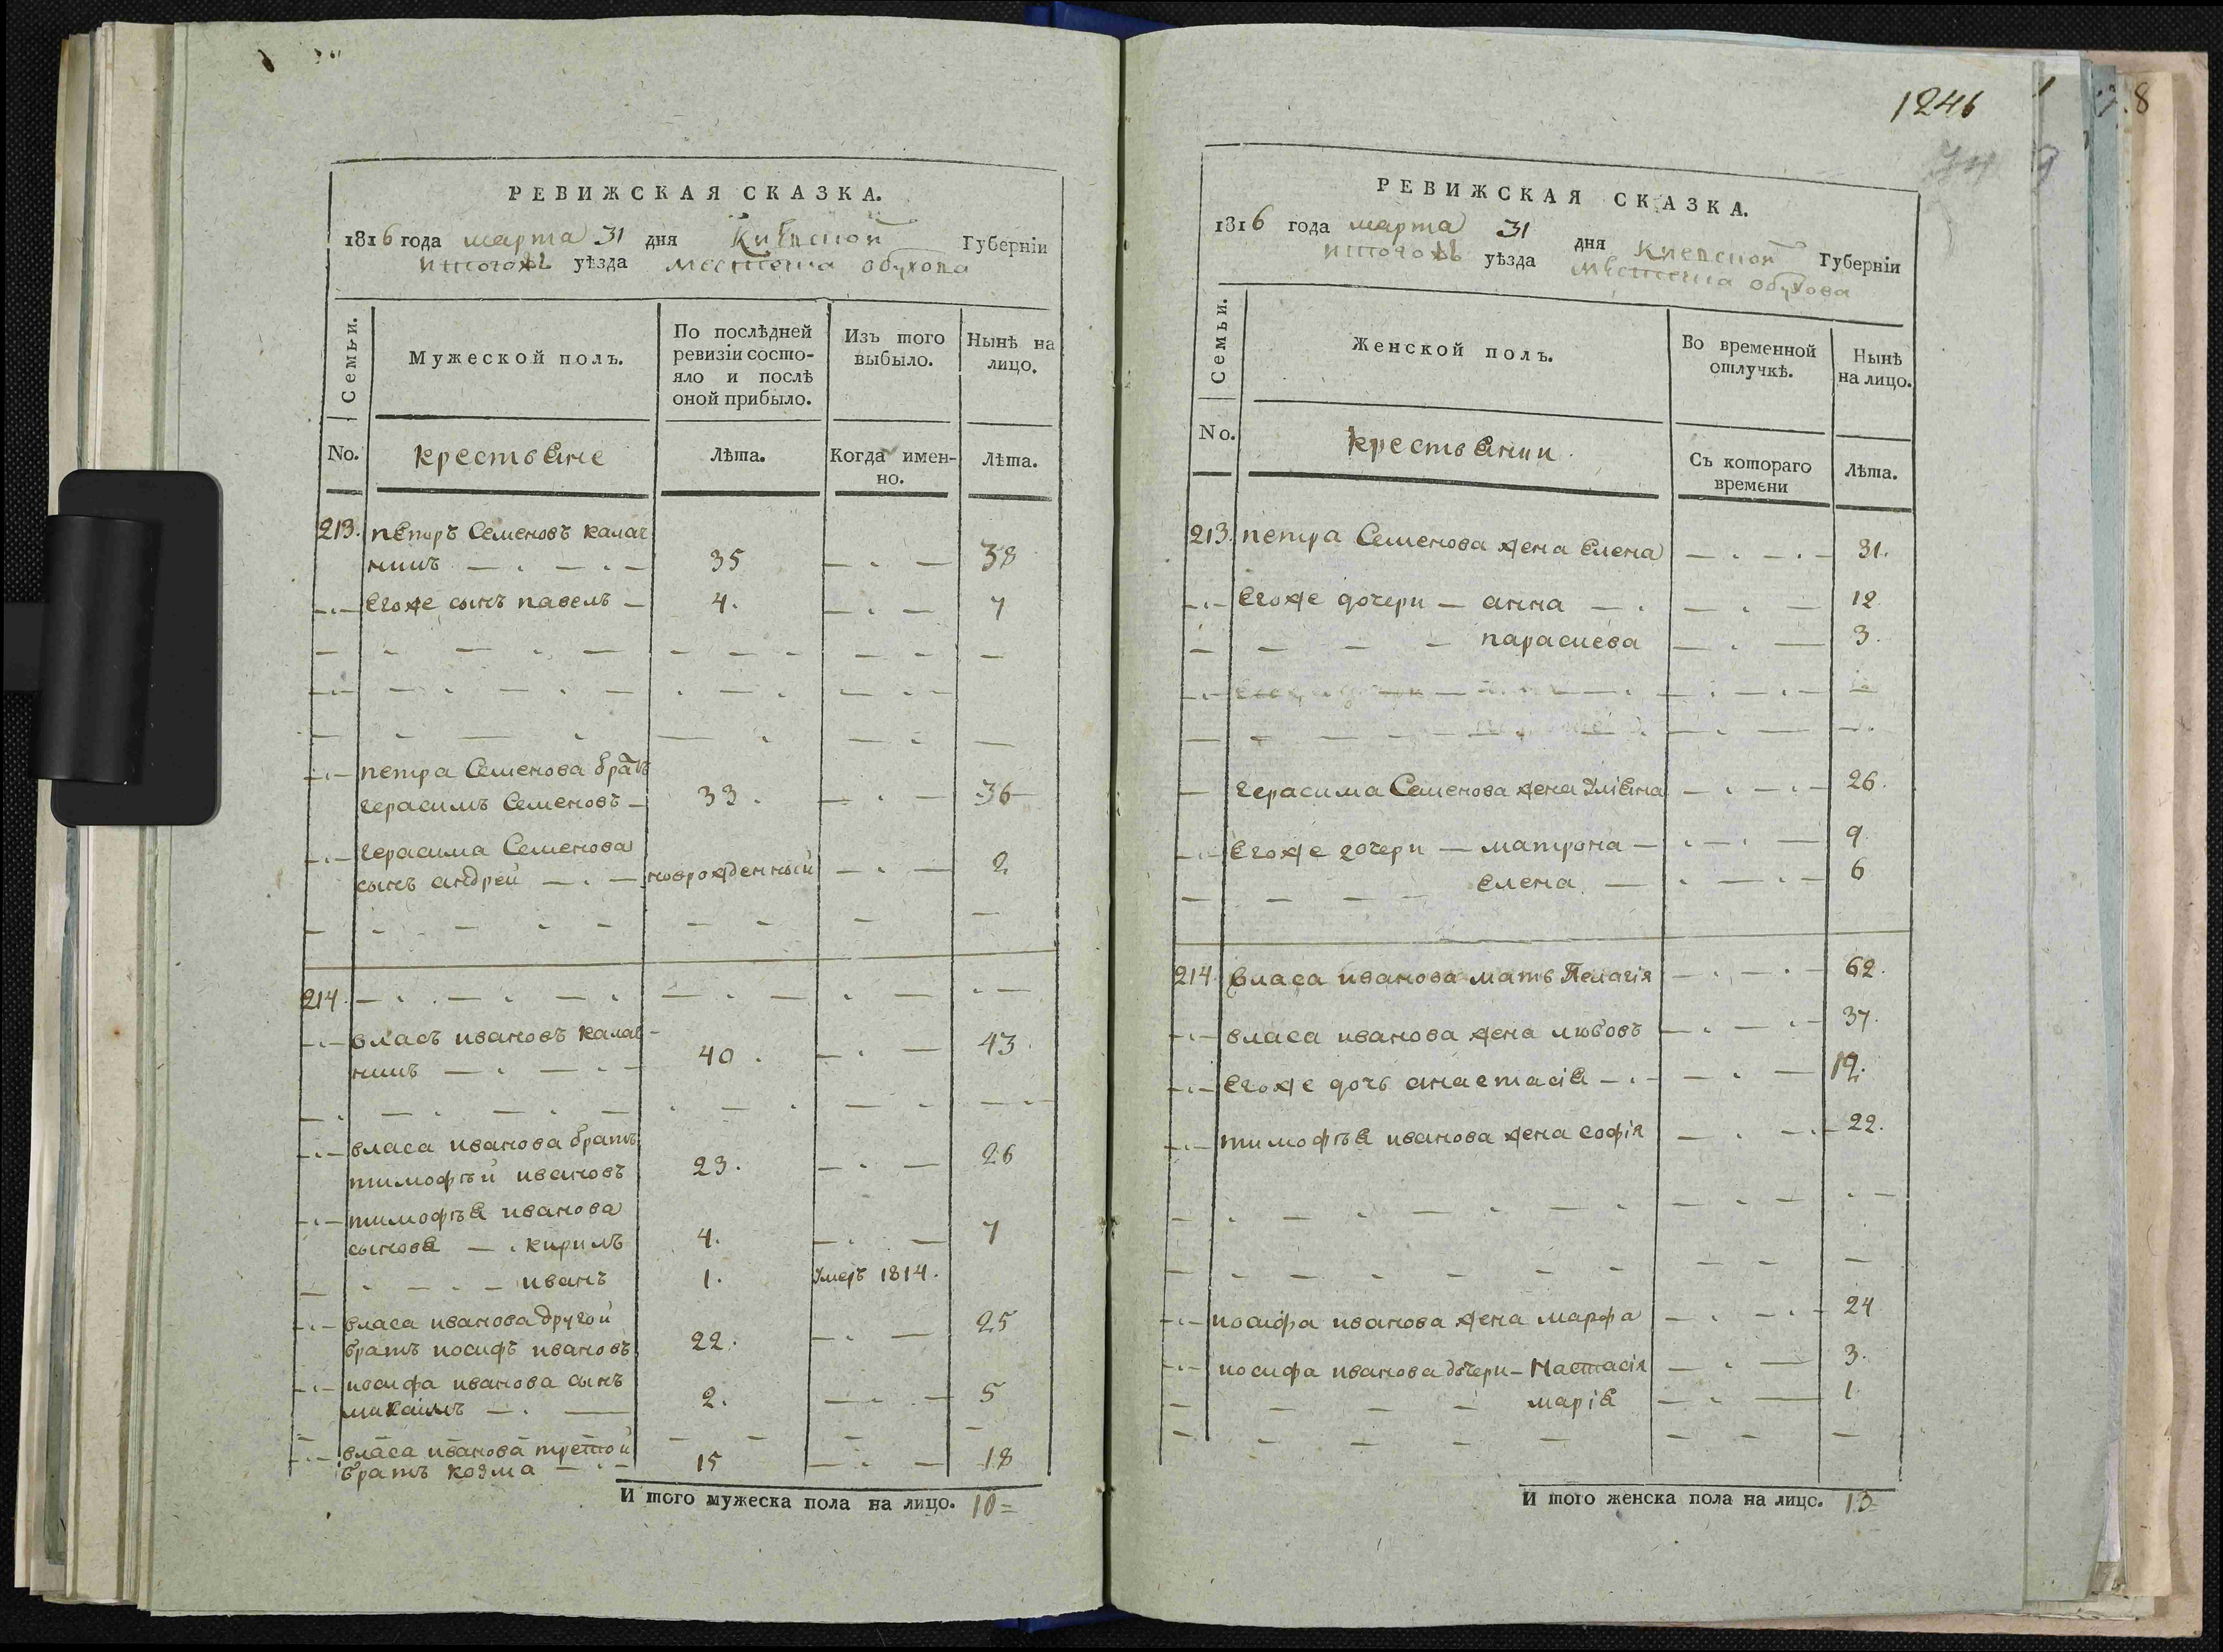 РЕВИЖСКАЯ СКАЗКА.
1816 года марта 31 дня Киевской Губерніи
уѣзда местечка обухова
Семьи.
Мужеской полъ.
По послѣдней ревизіи состо-
яло и послѣ
оной прибыло.
Изъ того
выбыло.
Нынѣ на
лицо.
No.
крестьяне
Лѣта.
Когда имен-
но.
Лѣта.
213. петръ Семеновъ калач
никъ — . — . — 35 — . — 38
— . — Егоже сынъ павелъ — 4. — . — 7
— . — петра Семенова братъ
герасимъ Семеновъ — 33. — . — 36
— . — герасима Семенова
сынъ андрей — . — новорожденный — . — 2
214.
— . — власъ ивановъ калач-
никъ — . — . — 40. — . — 43.
— . — власа иванова братъ
тимофѣй ивановъ 23. — . — 26
— . — тимофѣя иванова
сыновя — . кирилъ 4. — . — 7
иванъ 1. Умеръ 1814.
— . — власа иванова другой
братъ иосифъ ивановъ 22. — . — 25
— . — иосифа иванова сынъ
михаилъ — . — 2. — . — 5
— . — власа иванова третой
братъ козма — . — 15 — . — 18
И того мужеска пола на лицо. 10=
1246
РЕВИЖСКАЯ СКАЗКА.
1816 года марта 31 дня Киевской Губерніи
уѣзда местечка обухова
Семьи.
Женской полъ.
Во временной
отлучкѣ.
Нынѣ
на лицо.
No.
крестьянки.
Съ котораго
времени
Лѣта.
213. петра Семенова жена Елена — . — . — 31.
— . — Егоже дочери — анна — . — . — 12
параскева — . — 3.
— герасима Семенова жена Улияна — . — . — 26.
— . — Егоже дочери — матрона — . — . — 9.
елена — . — . — 6
214. власа иванова мать Пелагія — . — . — 62.
— . — власа иванова жена любовъ — . — . — 37.
— . — Егоже дочь анастасія — . — — . — 12.
— . — тимофѣя иванова жена софія — . — . — 22.
— . — иосифа иванова жена марфа — . — . — 24
— . — иосифа иванова дочери — Настасія — . — 3.
марія — . — 1.
И того женска пола на лицо. 13=